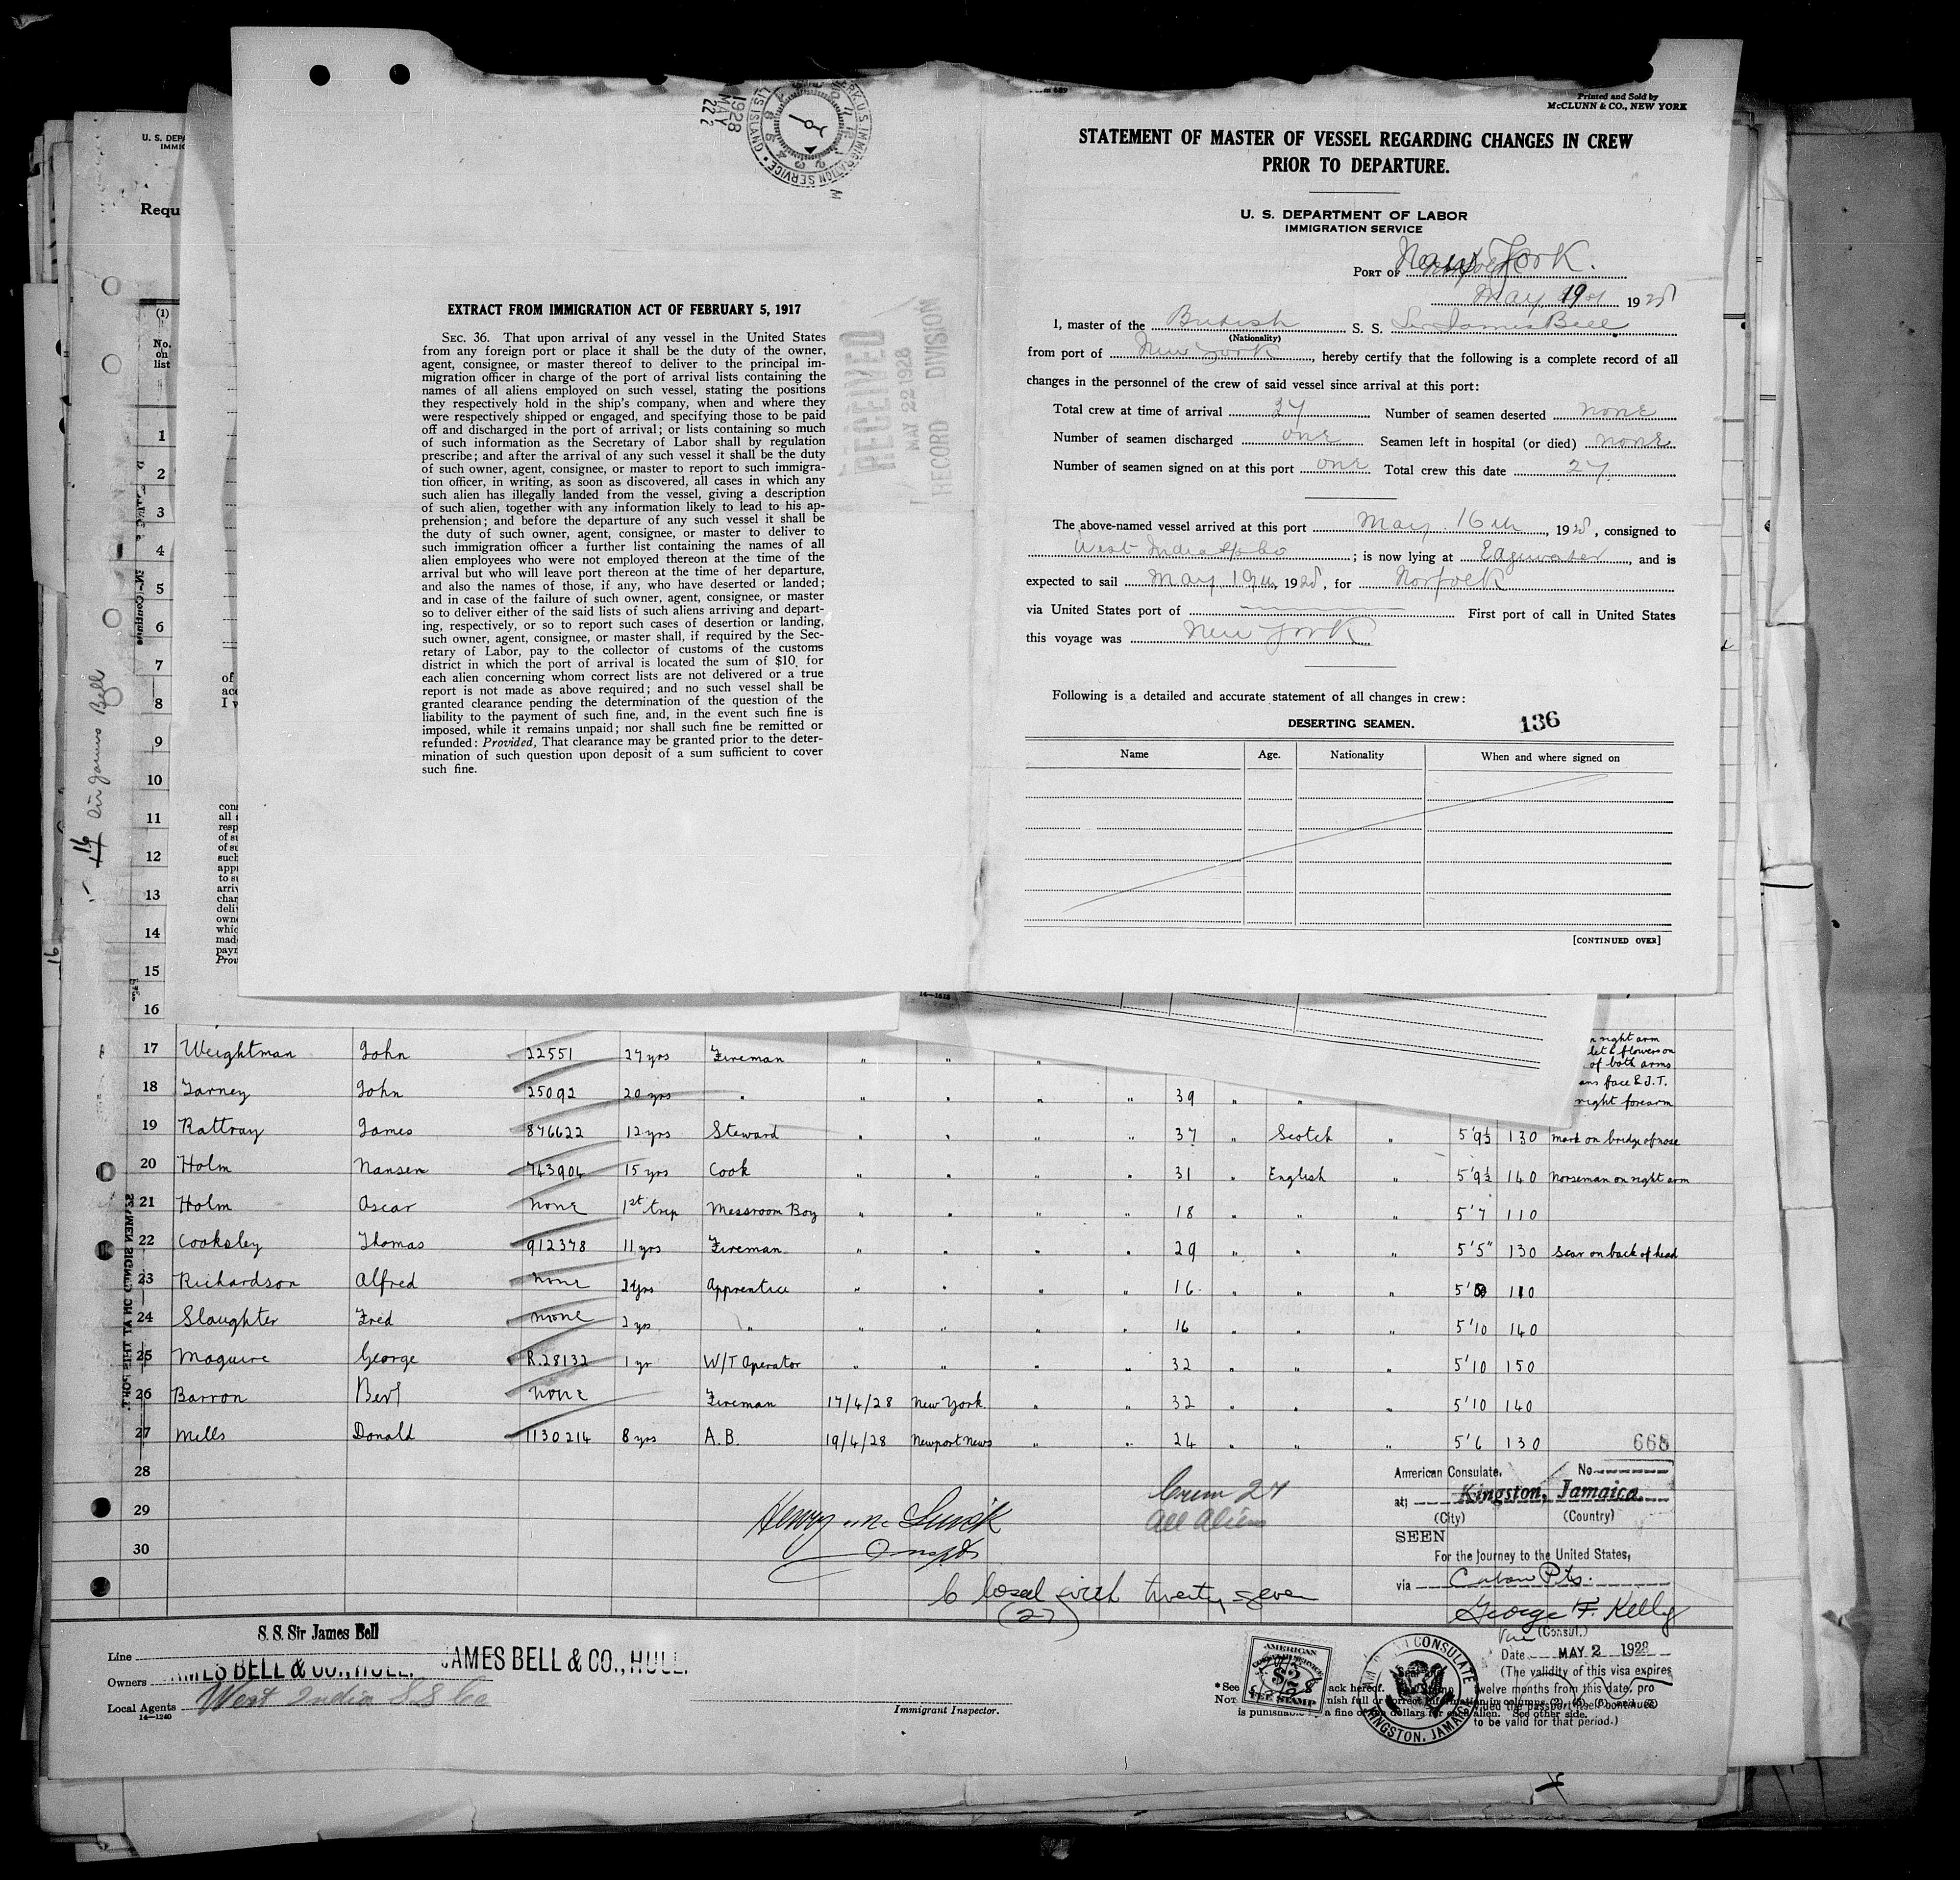 U. S. DEPA
IMMIG
Requ
(1)
No.
on
list
1
2
3
4
5
6
7
8
9
10
11
12
13
14
15
16
of
acc
I v
con
all
resp
of su
of su
such
appr
to su
arriv
char
deliv
own
whic
mad
payn
Prov
16
Sir James Bell
16
SEAMEN SIGNED ON AT THIS PORT.
1928
MAY
22
IMMIGRATION SERVICE
EXTRACT FROM IMMIGRATION ACT OF FEBRUARY 5, 1917
SEC. 36. That upon arrival of any vessel in the United States
from any foreign port or place it shall be the duty of the owner,
agent, consignee, or master thereof to deliver to the principal im-
migration officer in charge of the port of arrival lists containing the
names of all aliens employed on such vessel, stating the positions
they respectively hold in the ship's company, when and where they
were respectively shipped or engaged, and specifying those to be paid
off and discharged in the port of arrival; or lists containing so much
of such information as the Secretary of Labor shall by regulation
prescribe; and after the arrival of any such vessel it shall be the duty
of such owner, agent, consignee, or master to report to such immigra-
tion officer, in writing, as soon as discovered, all cases in which any
such alien has illegally landed from the vessel, giving a description
of such alien, together with any information likely to lead to his ap-
prehension; and before the departure of any such vessel it shall be
the duty of such owner, agent, consignee, or master to deliver to
such immigration officer a further list containing the names of all
alien employees who were not employed thereon at the time of the
arrival but who will leave port thereon at the time of her departure,
and also the names of those, if any, who have deserted or landed;
and in case of the failure of such owner, agent, consignee, or master
so to deliver either of the said lists of such aliens arriving and depart-
ing, respectively, or so to report such cases of desertion or landing,
such owner, agent, consignee, or master shall, if required by the Sec-
retary of Labor, pay to the collector of customs of the customs
district in which the port of arrival is located the sum of $10 for
each alien concerning whom correct lists are not delivered or a true
report is not made as above required; and no such vessel shall be
granted clearance pending the determination of the question of the
liability to the payment of such fine, and, in the event such fine is
imposed, while it remains unpaid; nor shall such fine be remitted or
refunded: Provided, That clearance may be granted prior to the deter-
mination of such question upon deposit of a sum sufficient to cover
such fine.
RECEIVED
MAY 22 1928
RECORD DIVISION
Printed and Sold by
McCLUNN & CO., NEW YORK
STATEMENT OF MASTER OF VESSEL REGARDING CHANGES IN CREW
PRIOR TO DEPARTURE.
U. S. DEPARTMENT OF LABOR
IMMIGRATION SERVICE
PORT OF New York.
May 19 1928
I, master of the British S. S. Sir James Bell
(Nationality)
from port of New York, hereby certify that the following is a complete record of all
changes in the personnel of the crew of said vessel since arrival at this port:
Total crew at time of arrival 27 Number of seamen deserted none
Number of seamen discharged one; Seamen left in hospital (or died) none
Number of seamen signed on at this port one Total crew this date 27
The above-named vessel arrived at this port May 16th, 1928, consigned to
West India SS Co; is now lying at Edgewater, and is
expected to sail May 19th, 1928, for Norfolk
via United States port of First port of call in United States
this voyage was New York
Following is a detailed and accurate statement of all changes in crew:
DESERTING SEAMEN. 136
Name Age. Nationality When and where signed on
[CONTINUED OVER]
n right arm
let & flowers on
of both arms
ans face & J.T.
right forearm
17 Weightman John 22551 27 yrs Fireman " " "
18 Tarney John 25092 20 yrs " " " " " 39 " "
19 Rattray James 876622 12 yrs Steward " " " " 37 " Scotch " 5'9½ 130 mark on bridge of nose
20 Holm Nansen 743904 15 yrs Cook " " " " 31 " English " 5'9½ 140 Norseman on right arm
21 Holm Oscar none 1st trip Messroom Boy " " " " 18 " " " 5'7 110
22 Cooksley Thomas 912378 11 yrs Fireman " " " " 29 " " " 5'5" 130 Scar on back of head
23 Richardson Alfred none 2 yrs Apprentice " " " " 16 " " " 5' 110
24 Slaughter Fred none 2 yrs " " " " " 16 " " " 5'10 140
25 Maguire George R.28132 1 yr W/T Operator " " " " 32 " " " 5'10 150
26 Barron Bert none Fireman 17/4/28 New York " " 32 " " " 5'10 140
27 Mills Donald 1130214 8 yrs A.B. 19/4/28 Newport News " " 24 " " " 5'6 130
28
29
30
668
Crew 27
All Aliens
Closed with twenty seven
(27)
American Consulate, No
at Kingston, Jamaica.
(City) (Country)
SEEN
For the Journey to the United States,
via Cuban Pts.
George F. Kelly
Vice (Consul.)
Date MAY 2 1928
(The validity of this visa expires
twelve months from this date, pro
vided the passport itself continues
to be valid for that period.)
S. S. Sir James Bell
Line
Owners JAMES BELL & CO., HULL.
JAMES BELL & CO., HULL.
Local Agents West India S S Co
14—1240
Immigrant Inspector.
AMERICAN
$2
FEE STAMP
AMERICAN CONSULATE
KINGSTON, JAMAICA